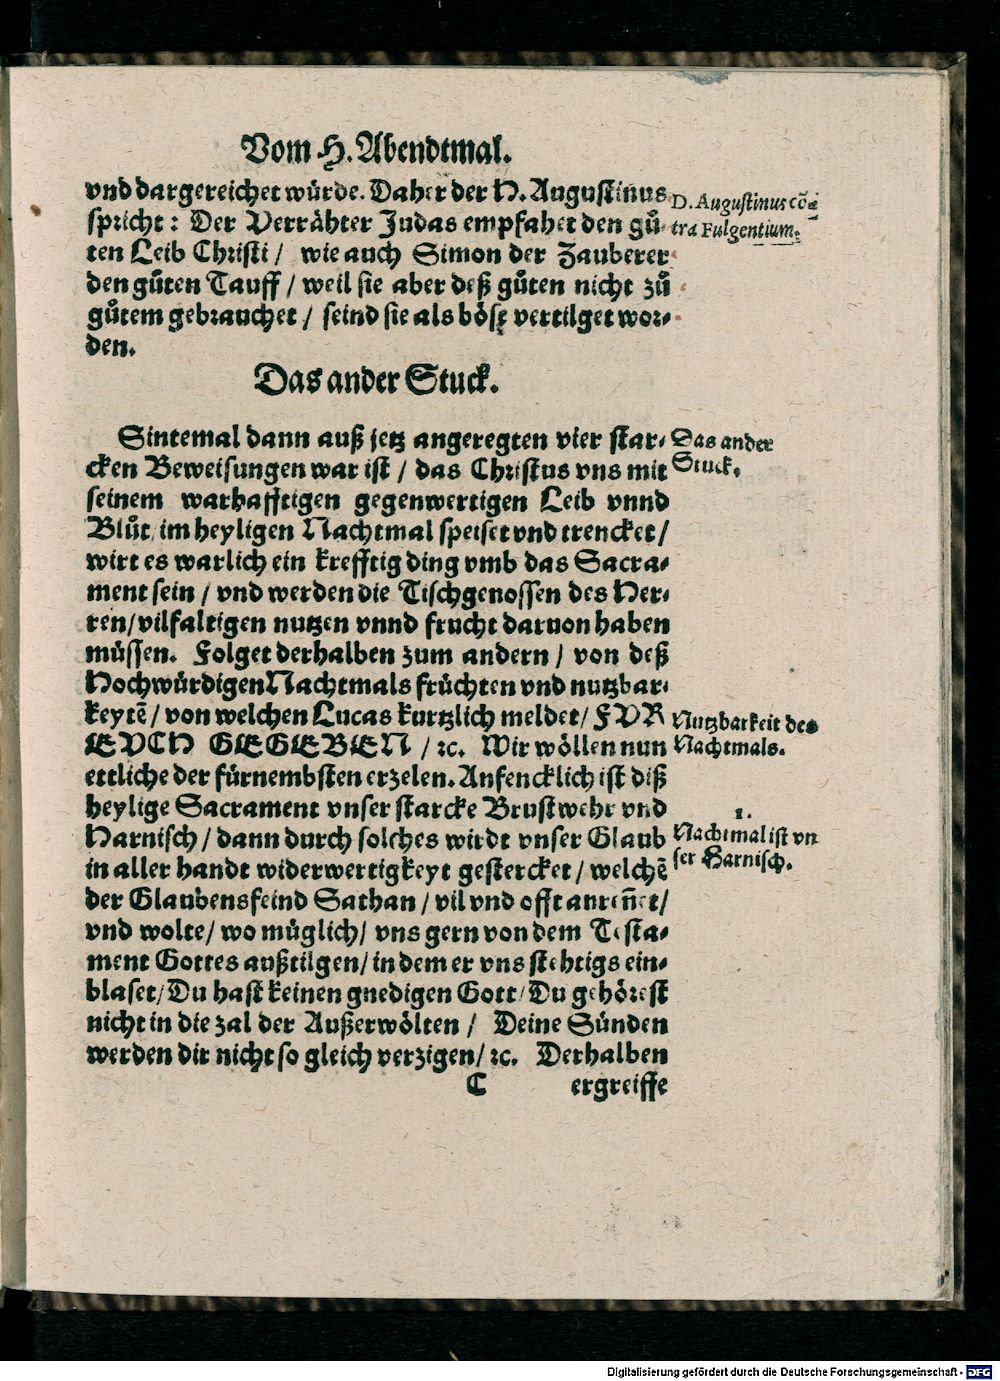 Vom H. Abendtmal.
vnd dargereichet würde. Daher der H. Augustinus
spricht: Der Verrähter Judas empfahet den gů-
ten Leib Christi / wie auch Simon der Zauberer
den gůten Tauff / weil sie aber deß gůten nicht zů
gůtem gebrauchet / seind sie als böse vertilget wor-
den.
D. Augustinus cõ-
tra Fulgentium.
Das ander Stuck.
Sintemal dann auß jetz angeregten vier star-
cken Beweisungen war ist / das Christus vns mit
seinem warhafftigen gegenwertigen Leib vnnd
Blůt, im heyligen Nachtmal speiset vnd trencket /
wirt es warlich ein krefftig ding vmb das Sacra-
ment sein / vnd werden die Tischgenossen des Her-
ren / vilfaltigen nutzen vnnd frucht daruon haben
müssen. Folget derhalben zum andern / von deß
Hochwürdigen Nachtmals früchten vnd nutzbar-
keytẽ / von welchen Lucas kurtzlich meldet / FVR
EVCH GEGEBEN / ꝛc. Wir wöllen nun
ettliche der fürnembsten erzelen. Anfencklich ist diß
heylige Sacrament vnser starcke Brustwehr vnd
Harnisch / dann durch solches wirdt vnser Glaub
in aller handt widerwertigkeyt gestercket / welchẽ
der Glaubensfeind Sathan / vil vnd offt anreñet /
vnd wolte / wo müglich / vns gern von dem Testa-
ment Gottes außtilgen / in dem er vns stehtigs ein-
blaset / Du hast keinen gnedigen Gott / Du gehörest
nicht in die zal der Außerwölten / Deine Sünden
werden dir nicht so gleich verzigen / ꝛc. Derhalben
Das ander
Stuck.
Nutzbarkeit des
Nachtmals.
1.
Nachtmal ist vn
ser Harnisch.
C ergreiffe
Digitalisierung gefördert durch die Deutsche Forschungsgemeinschaft - DFG